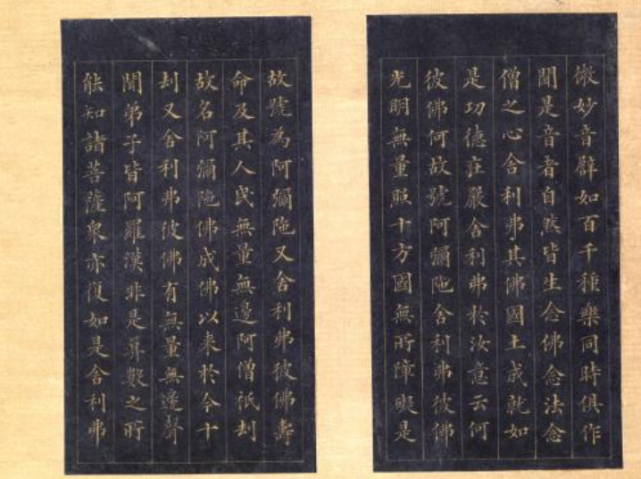 微妙音辟如百千種樂同時俱作
聞是音者自然皆生念佛念法念
僧之心舍利弗其佛國土成就如
是功德莊嚴舍利弗於汝意云何
彼佛何故號阿彌陁舍利弗彼佛
光明無量照十方國無所障㝵是
故號為阿彌陁又舍利弗彼佛壽
命及其人民無量無邊阿僧祇刦
故名阿彌陁佛成佛以来於今十
刦又舍利弗彼佛有無量無邊聲
聞弟子皆阿羅漢非是算數之所
能知諸菩薩眾亦復如是舍利弗